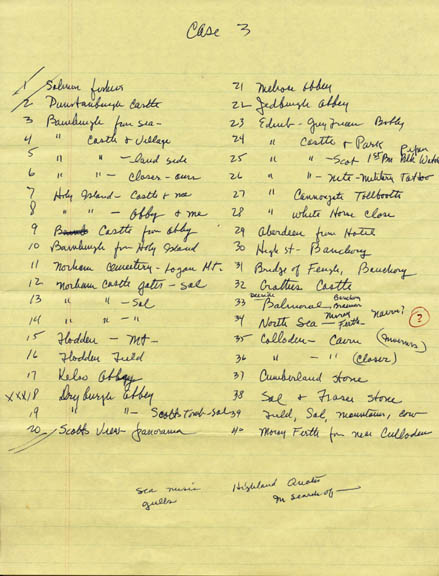 Case 3
1 Salmon fishers
2 Dunstanburgh Castle
3 Bamburgh from sea-
4 " Castle & Village
5 " " - land side
6 " " - closer - ours
7 Holy Island - Castle & me
8 " " - Abbey & me
9 Castle from Abby
10 Barnburgh from Holy Island
11 Norham Cemetery - Logan Mt.
12 Norham Castle gates - Sal
13 " " " - Sal
14 " " "
15 Flodden - Mt-
16 Flodden Field
17 Kelso Abbey
XXX18 Dryburgh Abbey
19 " " - Scotts Tomb - Sal
20 Scotts View - Panorama
21 Melrose Abbey
22 Jedburgh Abbey
23 Edinb - Greyfriars Bobby
24 " Castle & Park
25 " " - Scot 1st Bn Blk Watch Piper
26 " " - Mts - Military Tattoo
27 " Cannongate Tollbooth
28 " White Horse Close
29 Aberdeen from Hotel
30 High St - Banchory
31 Bridge of Feugh, Banchory
32 Crathes Castle
33 Deeside Balmoral - Banchory Braemar
34 North Sea - Moray Firth - nairn? ?
35 Culloden - Cairn (Inverness)
36 " - " (Closer)
37 Cumberland Stone
38 Sal & Fraser Stone
39 Field, Sal, mountains, cow
40 Moray Firth from near Culloden
Sea music
gulls
Highland Quotes
In search of —